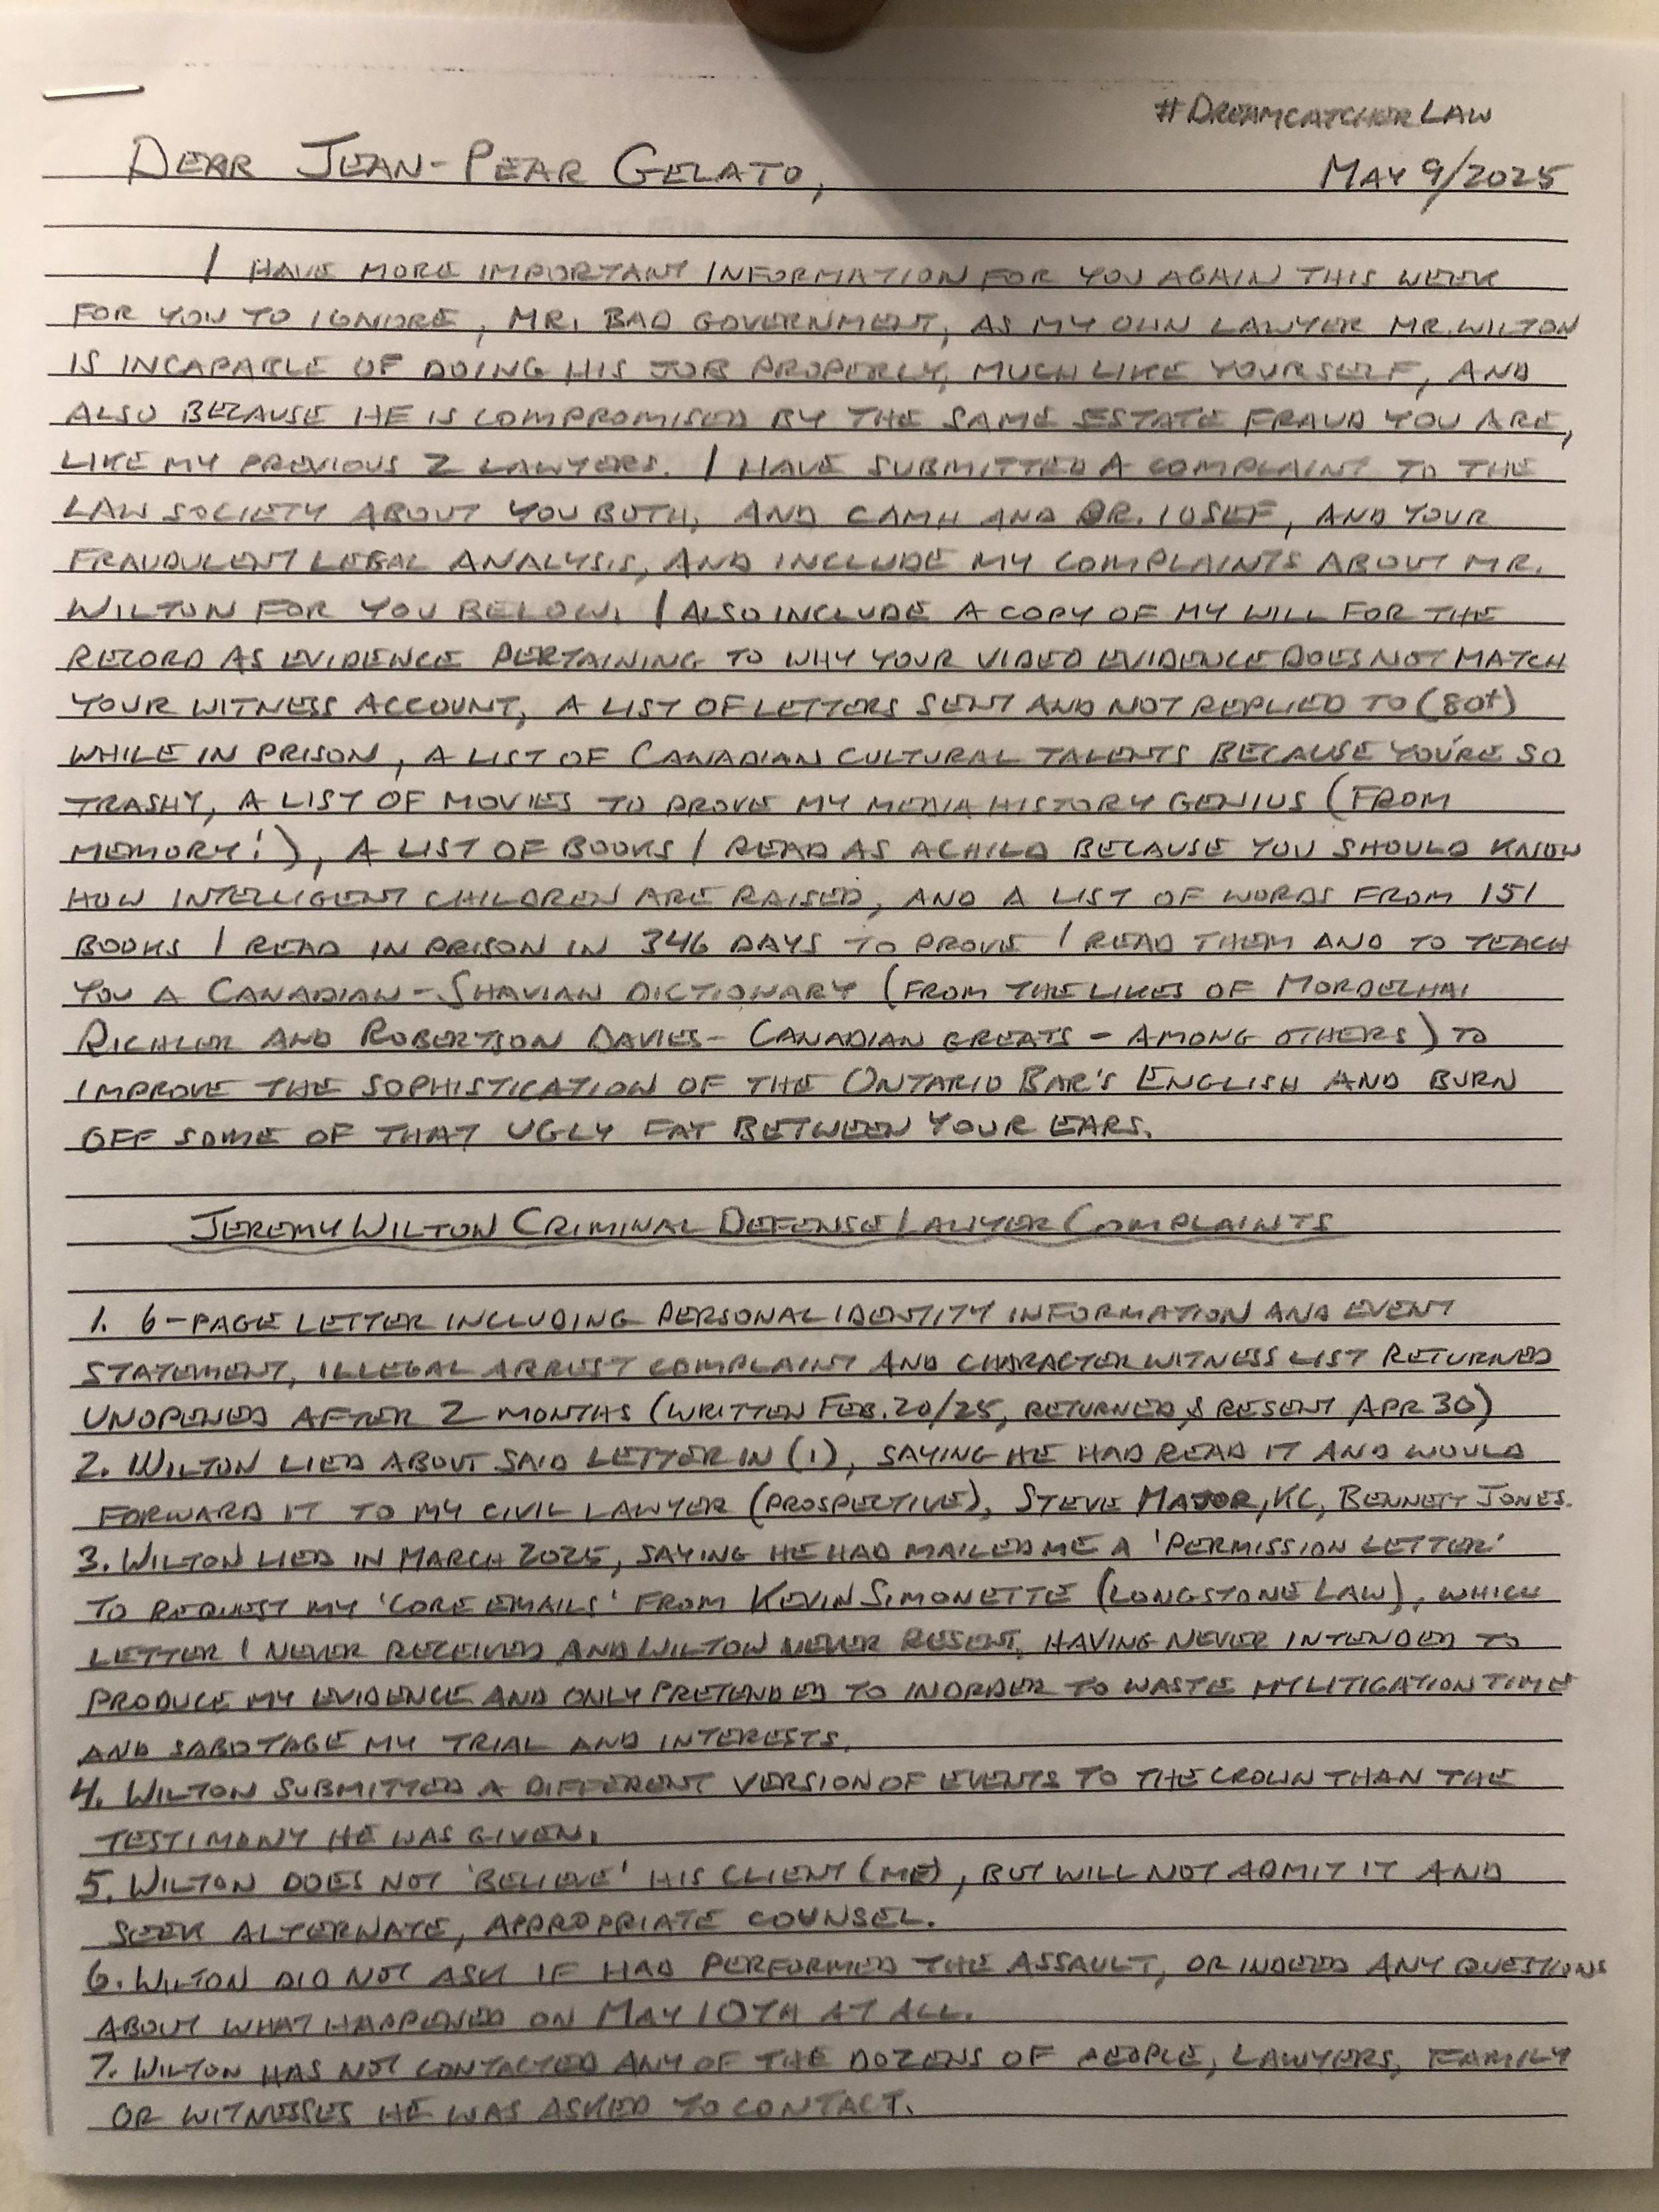 #DREAMCATCHER LAW
DEAR JEAN-PEAR GELATO,
MAY 9/2025
I HAVE MORE IMPORTANT INFORMATION FOR YOU AGAIN THIS WEEK
FOR YOU TO IGNORE, MR. BAD GOVERNMENT, AS MY OWN LAWYER MR. WILTON
IS INCAPABLE OF DOING HIS JOB PROPERLY, MUCH LIKE YOURSELF, AND
ALSO BECAUSE HE IS COMPROMISED BY THE SAME ESTATE FRAUD YOU ARE,
LIKE MY PREVIOUS 2 LAWYERS. I HAVE SUBMITTED A COMPLAINT TO THE
LAW SOCIETY ABOUT YOU BOTH, AND CAMH AND DR. IOSEF, AND YOUR
FRAUDULENT LEGAL ANALYSIS, AND INCLUDE MY COMPLAINTS ABOUT MR.
WILTON FOR YOU BELOW. I ALSO INCLUDE A COPY OF MY WILL FOR THE
RECORD AS EVIDENCE PERTAINING TO WHY YOUR VIDEO EVIDENCE DOES NOT MATCH
YOUR WITNESS ACCOUNT, A LIST OF LETTERS SENT AND NOT REPLIED TO (80+)
WHILE IN PRISON, A LIST OF CANADIAN CULTURAL TALENTS BECAUSE YOU'RE SO
TRASHY, A LIST OF MOVIES TO PROVE MY MEDIA HISTORY GENIUS (FROM
MEMORY!), A LIST OF BOOKS I READ AS A CHILD BECAUSE YOU SHOULD KNOW
HOW INTELLIGENT CHILDREN ARE RAISED, AND A LIST OF WORDS FROM 151
BOOKS I READ IN PRISON IN 346 DAYS TO PROVE I READ THEM AND TO TEACH
YOU A CANADIAN-SHAVIAN DICTIONARY (FROM THE LIKES OF MORDELHAI
RICHLER AND ROBERTSON DAVIES - CANADIAN GREATS - AMONG OTHERS) TO
IMPROVE THE SOPHISTICATION OF THE ONTARIO BAR'S ENGLISH AND BURN
OFF SOME OF THAT UGLY FAT BETWEEN YOUR EARS.
JEREMY WILTON CRIMINAL DEFENSE LAWYER COMPLAINTS
1. 6-PAGE LETTER INCLUDING PERSONAL IDENTITY INFORMATION AND EVENT
STATEMENT, ILLEGAL ARREST COMPLAINT AND CHARACTER WITNESS LIST RETURNED
UNOPENED AFTER 2 MONTHS (WRITTEN FEB. 20/25, RETURNED & RESENT APR 30)
2. WILTON LIED ABOUT SAID LETTER IN (1), SAYING HE HAD READ IT AND WOULD
FORWARD IT TO MY CIVIL LAWYER (PROSPECTIVE), STEVE MAJOR, KC, BENNETT JONES.
3. WILTON LIED IN MARCH 2025, SAYING HE HAD MAILED ME A 'PERMISSION LETTER'
TO REQUEST MY 'CORE EMAILS' FROM KEVIN SIMONETTE (LONGSTONE LAW), WHICH
LETTER I NEVER RECEIVED AND WILTON NEVER RESENT, HAVING NEVER INTENDED TO
PRODUCE MY EVIDENCE AND ONLY PRETENDED TO IN ORDER TO WASTE MY LITIGATION TIME
AND SABOTAGE MY TRIAL AND INTERESTS.
4. WILTON SUBMITTED A DIFFERENT VERSION OF EVENTS TO THE CROWN THAN THE
TESTIMONY HE WAS GIVEN.
5. WILTON DOES NOT 'BELIEVE' HIS CLIENT (ME), BUT WILL NOT ADMIT IT AND
SEEK ALTERNATE, APPROPRIATE COUNSEL.
6. WILTON DID NOT ASK IF HAD PERFORMED THE ASSAULT, OR INDEED ANY QUESTIONS
ABOUT WHAT HAPPENED ON MAY 10TH AT ALL.
7. WILTON HAS NOT CONTACTED ANY OF THE DOZENS OF PEOPLE, LAWYERS, FAMILY
OR WITNESSES HE WAS ASKED TO CONTACT.